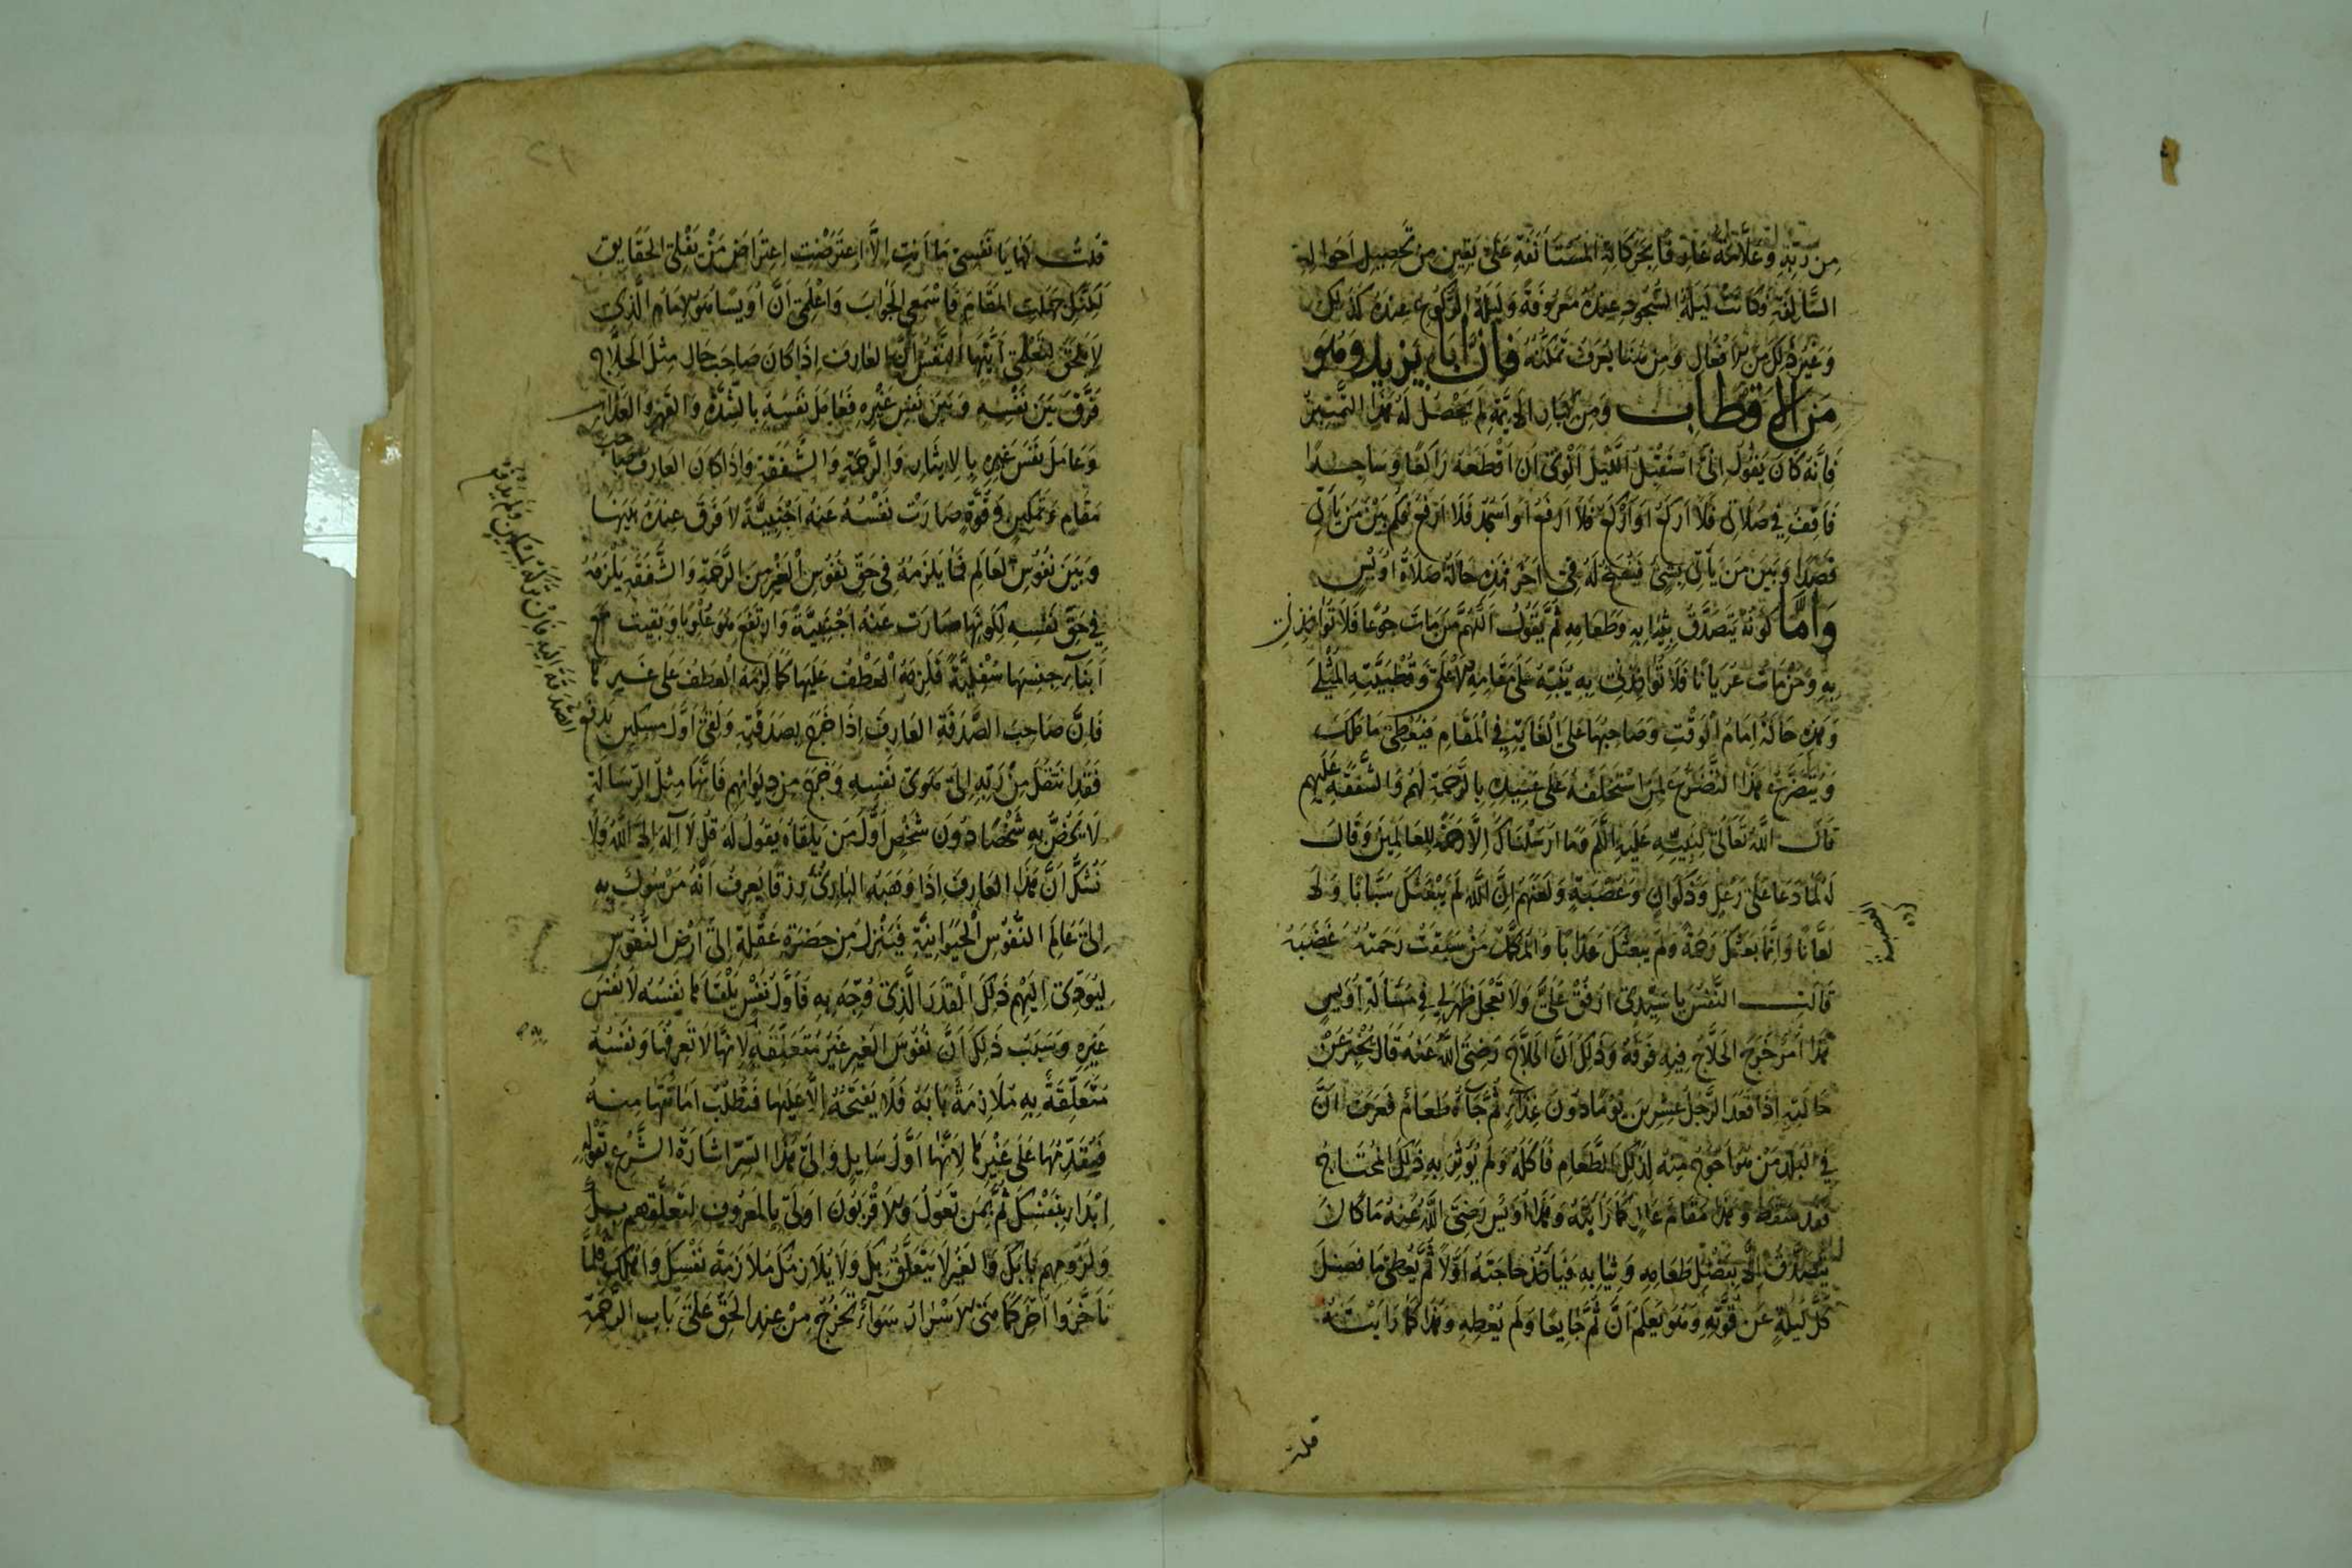 من رتبة وعلامة عال فانحركاته المستأنفة على يقين من تحصيل احواله
السالفة وكانت ليلة السجود عنده معروفة وليلة الركوع عنده كذلك
وغير ذلك من الافعال ومن هنا يعرف تمكنه فان ابا يزيد وهو
من الاقطاب ومن كبار الائمة لم يحصل له هذا التمييز
فانه كان يقول انى استقبل الليل انوى ان اقطعه راكعا وساجدا
فاقف في صلاتى فلا اركع او اركع فلا ارفع او اسجد فلا ارفع فكم بين من يأتى
قصدا وبين من يأتى بشئ فيفتح له فى اخر فهذه حالة صلاة اويس
واما كونه يتصدق بثيابه وطعامه ثم يقول اللهم من مات جوعا فلا تؤاخذنى
به ومن مات عريانا فلا تؤاخذنى به ينبه على مقامه الاعلى وقطبيته المثلى
وهذه حالة امام الوقت وصاحبها على الغاية في المقام فيعطى ما ملك
ويتضرع هذا التضرع لمن استخلفه على عبيده بالرحمة لهم والشفقة عليهم
قال الله تعالى لنبيه عليه السلم وما ارسلناك الا رحمة للعالمين وقال
له لما دعا على رعل وذكوان وعصية ولعنهم ان الله لم يبعثك سبابا ولا
لعانا وانما بعثك رحمة ولم يبعثك عذابا والملك من سبقت رحمته غضبه
قالت النفس يا سيدى ارفق على ولا تعجل ظهر لي في مسألة اويس
هذا امر خرج الحلاج فيه فوقه وذلك ان الحلاج رضى الله عنه قال يخبر عن
حالته اذا قعد الرجل عشرين يوما دون غذاء ثم جاءه طعام فعرف ان
في البلد من هو احوج منه لذلك الطعام فاكله ولم يؤثر به ذلك المحتاج
فقد سقط وهذا مقام عال كما رايته وهذا اويس رضى الله عنه ما كان
يتصدق الا بفضل طعامه وثيابه فيأخذ حاجته اولا ثم يعطى ما فضل
كل ليلة عن قوته وهو يعلم ان ثم جايعا ولم يعطه وهذا كما رايت
قلت
قلت لها يا نفسى ما انت الا اعترضت اعتراض من يغلى الحقايق
لكن جهلت المقام فاسمعى الجواب واعلمى ان اويسا هو الامام الذي
لا يلحق لتعلمى ايتها النفس ان العارف اذا كان صاحب حال مثل الحلاج
فرق بين نفسه وبين نفس غيره فعامل نفسه بالشدة والقهر والعذاب
وعامل نفس غيره بالايثار والرحمة والشفقة واذا كان العارف صاحب
مقام وتمكين وقوة صارت نفسه عنه اجنبية لا فرق عنده بينها
وبين نفوس العالم فما يلزمه في حق نفوس الغير من الرحمة والشفقة يلزمه
في حق نفسه لكونها صارت عنه اجنبية وارتفع هو علويا وبقيت مع
ابناء جنسها سفلية فلزمه العطف عليها كما لزمه العطف على غيرها
فان صاحب الصدقة العارف اذا خرج بصدقته ولقى اول مسكين يدفع
فقد انتقل من ربه الى هوى نفسه وخرج من ديوانهم فانها مثل الرسالة
لا يخص به شخصا دون شخص اول من يلقاه يقول له قل لا اله الا الله ولا
نشك ان هذا العارف اذا وهبه البارئ رزقا يعرف انه مرسول به
الى عالم النفوس الحيوانية فينزل من حضرة عقله الى ارض النفوس
ليودى اليهم ذلك القدر الذى وجه به فاول نفس يلقاها نفسه لا نفس
غيره وسبب ذلك ان نفوس الغير غير متعلقة لانها لا تعرفها ونفسه
متعلقة به ملازمة بابه فلا يفتحه الا عليها فتطلب امانتها منه
فيقدمها على غيرها لانها اول سايل والى هذا السر اشارة الشرع بقوله
ابدا بنفسك ثم بمن تعول والاقربون اولى بالمعروف لتعلقهم بك
ولزومهم بابك والغير لا يتعلق بك ولا يلازمك ملازمة نفسك واهلك فلما
تأخروا اخر كما هى الاسرار سواء تخرج من عند الحق على باب الرحمة